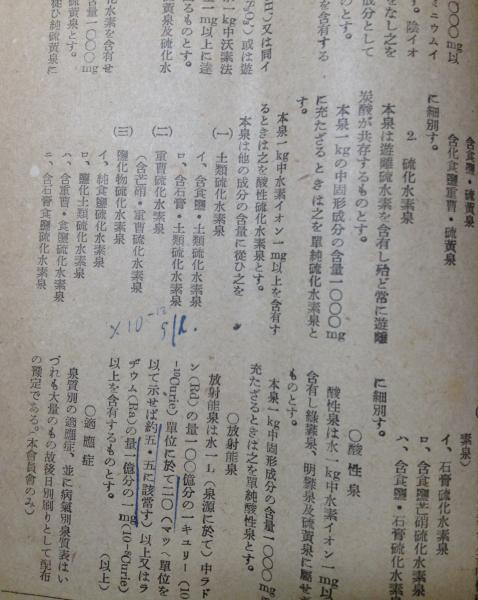 〇〇〇mg以
ミニウムイ
す。陰イオ
をなし之を
成分として
のとす。
を含有する
H)又は同イ
)或は遊
一kg中沃素法
一mg以上に達
るものとす。
泉及硫化水
化水素を含有せ
含量一〇〇〇mg
硫黄泉とす。
硫黄泉に
含食鹽・硫黄泉
含化食鹽重曹・硫黄泉
に細別す。
2. 硫化水素泉
本泉は遊離硫化水素を含有し殆ど常に遊離
炭酸が共存するものとす。
本泉一kgの中固形成分の含量一〇〇〇mg
に充たざるときは之を單純硫化水素泉と
す。
本泉一kg中水素イオン一mg以上を含有す
るときは之を酸性硫化水素泉とす。
本泉は他の成分の含量に從ひ之を
(一) 土類硫化水素泉
イ、含食鹽・土類硫化水素泉
ロ、含石膏・土類硫化水素泉
(二) 重曹硫化水素泉
(含芒硝・重曹硫化水素泉)
(三) 鹽化物硫化水素泉
イ、純食鹽硫化水素泉
ロ、鹽化土類硫化水素泉
ハ、含重曹・食鹽硫化水素泉
ニ、含石膏食鹽硫化水素泉
×10⁻¹²
素泉)
イ、石膏硫化水素泉
ロ、含食鹽芒硝硫化水素泉
ハ、含食鹽・石膏硫化水素
に細別す。
〇酸性泉
酸性泉は水一kg中水素イオン一mg以
含有し綠礬泉、明礬泉及硫黄泉に屬せ
ものとす。
本泉一kg中固形成分の含量一〇〇〇mg
充たざるときは之を單純酸性泉とす。
〇放射能泉
放射能泉は水一L(泉源に於て)中ラド
ン(Rd)の量一〇〇億分の一キュリー(10
⁻¹⁰Curie)單位に於て二〇(マッヘ單位を
以て示せば約五・五に該當す)以上又はラ
ヂウム(Ra)の量一億分の一mg(10⁻⁸Curie)
以上を含有するものとす。 (以上)
〇適應症
泉質別の適應症、並に病氣別泉質表はい
づれも大量のもの故後日別刷りとして配布
の豫定である。(本會員會のみ)